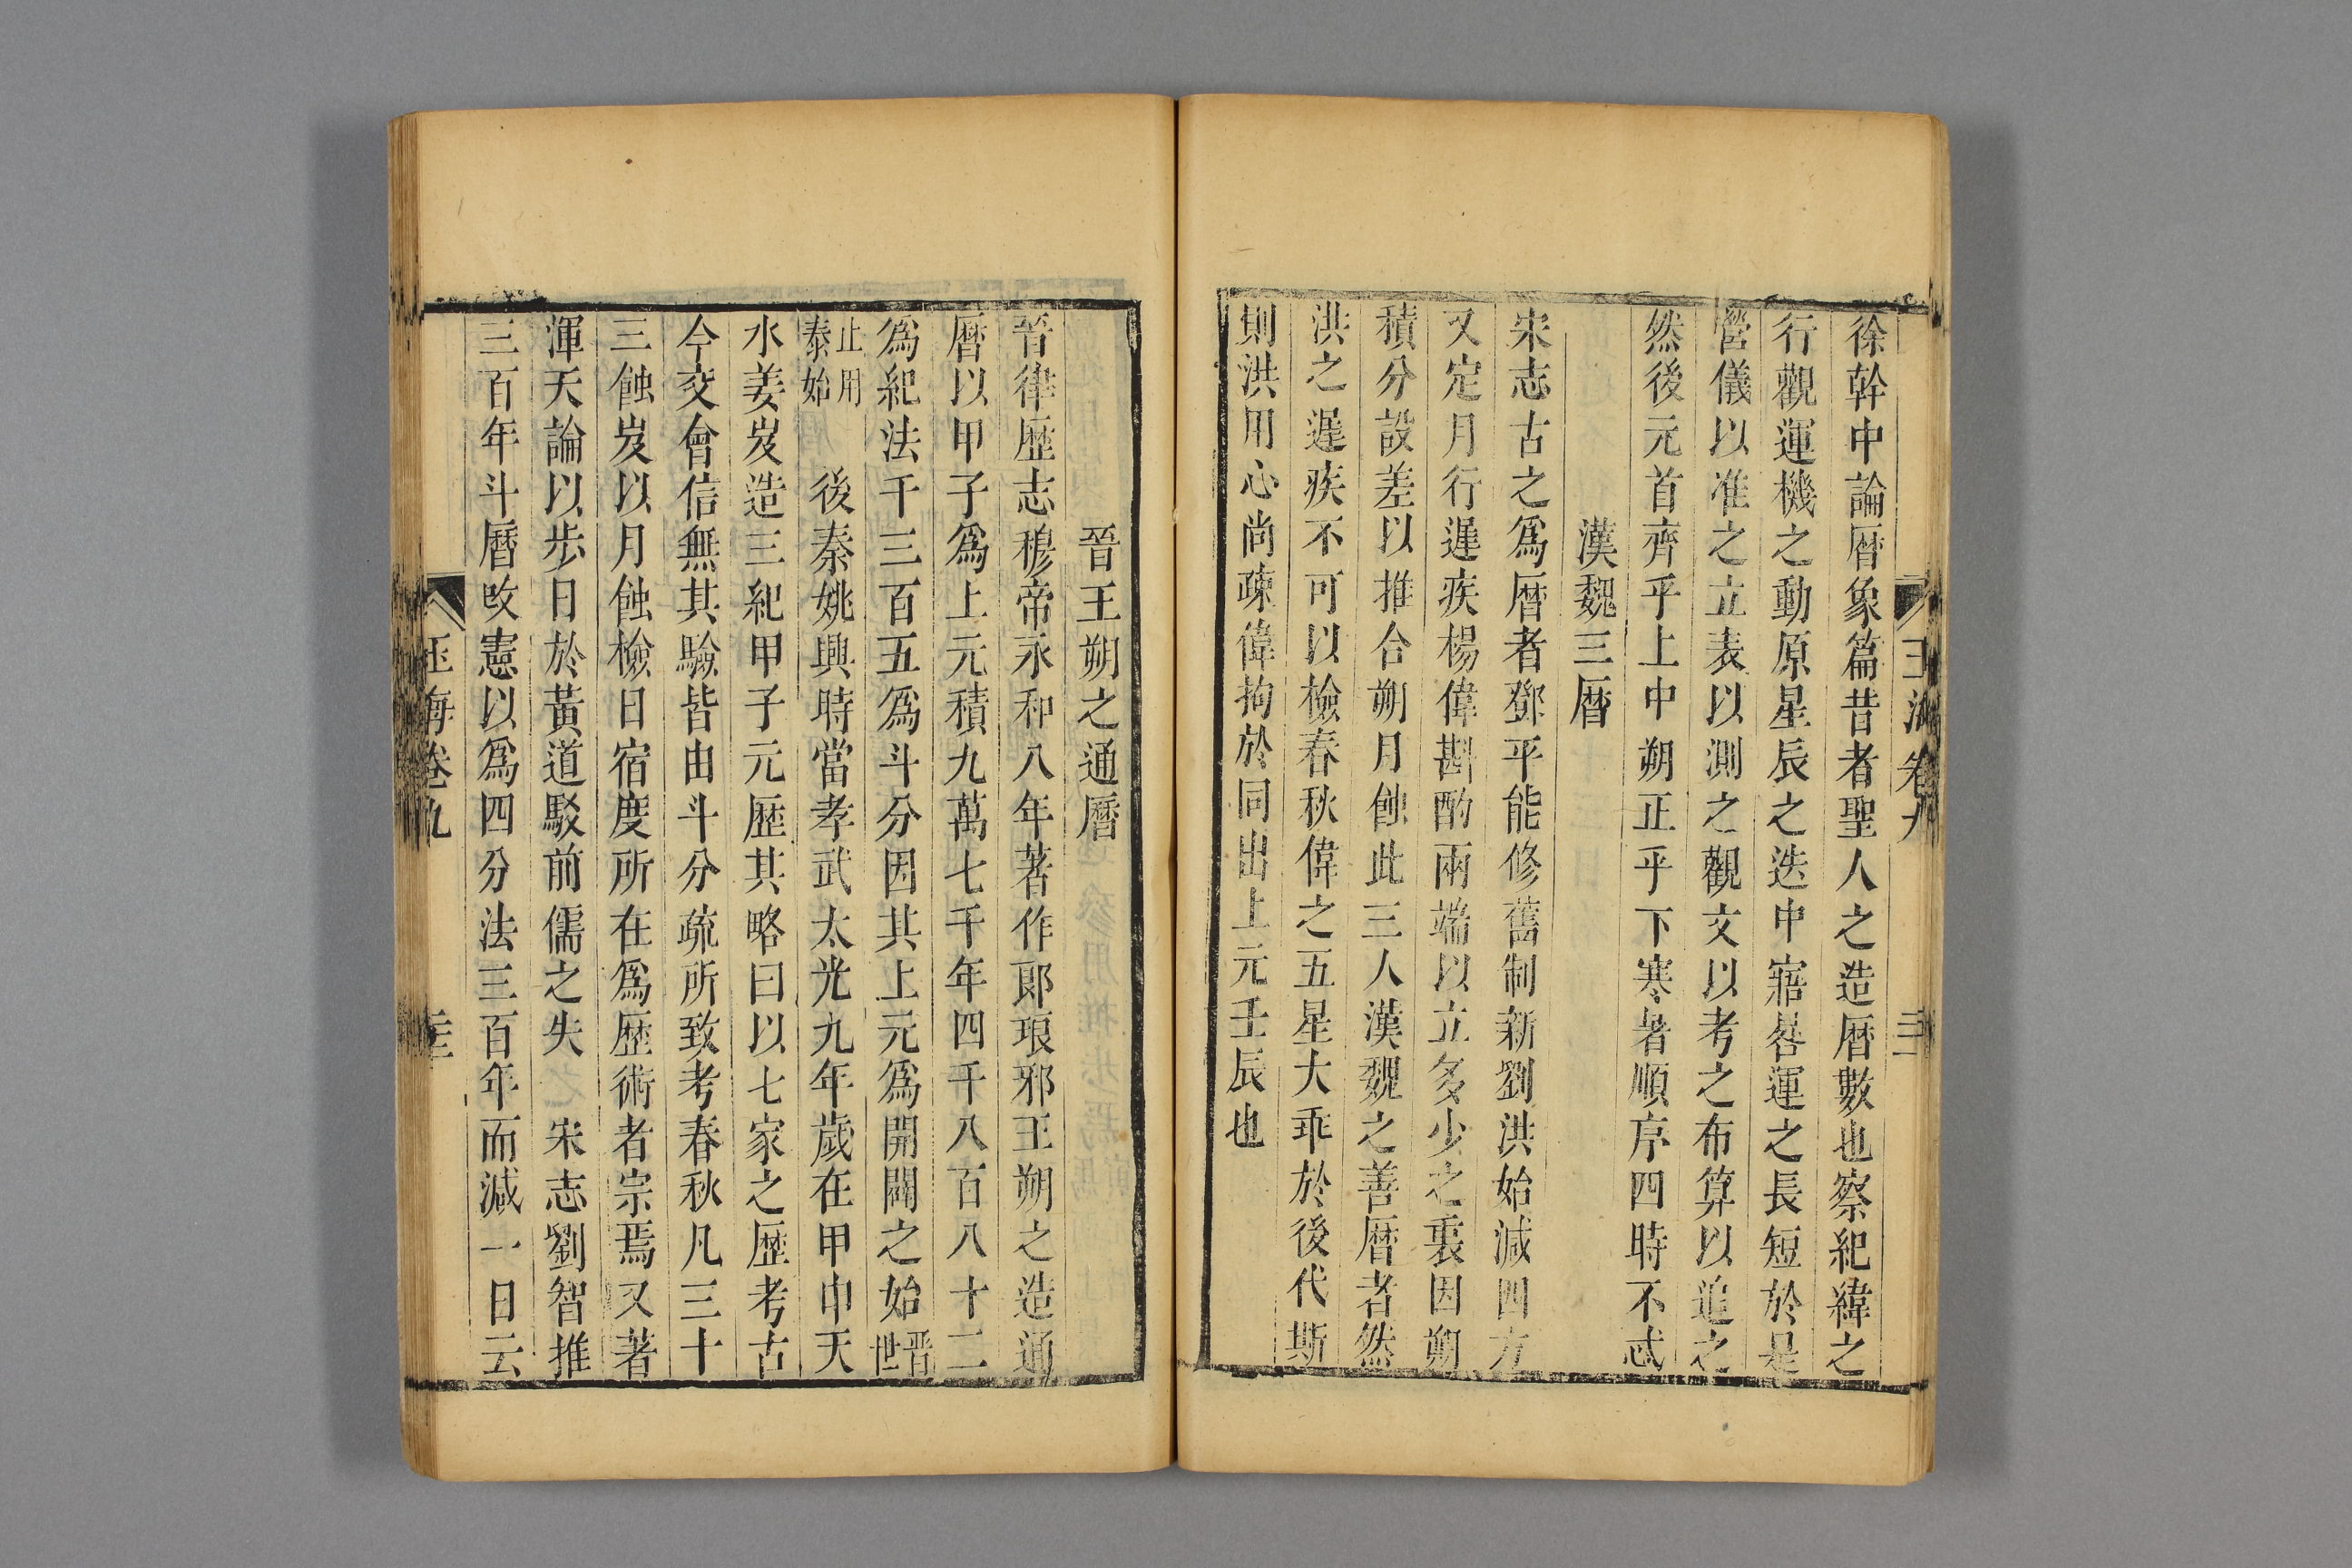 徐幹中論曆象篇昔者聖人之造曆數也察紀緯之
行觀運機之動原星辰之迭中寤晷運之長短於是
營儀以准之立表以測之觀文以考之布算以追之
然後元首齊乎上中朔正乎下寒暑順序四時不忒
漢魏三曆
宋志古之爲曆者鄧平能修舊制新劉洪始減四方
又定月行遲疾楊偉斟酌兩端以立多少之衷因朔
積分設差以推合朔月蝕此三人漢魏之善曆者然
洪之遲疾不可以檢春秋偉之五星大乖於後代斯
則洪用心尚疎偉拘於同出上元壬辰也
晉王朔之通曆
晉律歷志穆帝永和八年著作郎琅邪王朔之造通
曆以甲子爲上元積九萬七千年四千八百八十二
爲紀法千三百五爲斗分因其上元爲開闢之始晉世
止用泰始 後秦姚興時當孝武太光九年歲在甲申天
水姜岌造三紀甲子元歷其略曰以七家之歷考古
今交會信無其驗皆由斗分疏所致考春秋凡三十
三蝕岌以月蝕檢日宿度所在爲歷術者宗焉又著
渾天論以步日於黃道駁前儒之失 宋志劉智推
三百年斗曆改憲以爲四分法三百年而減一日云
玉海卷九